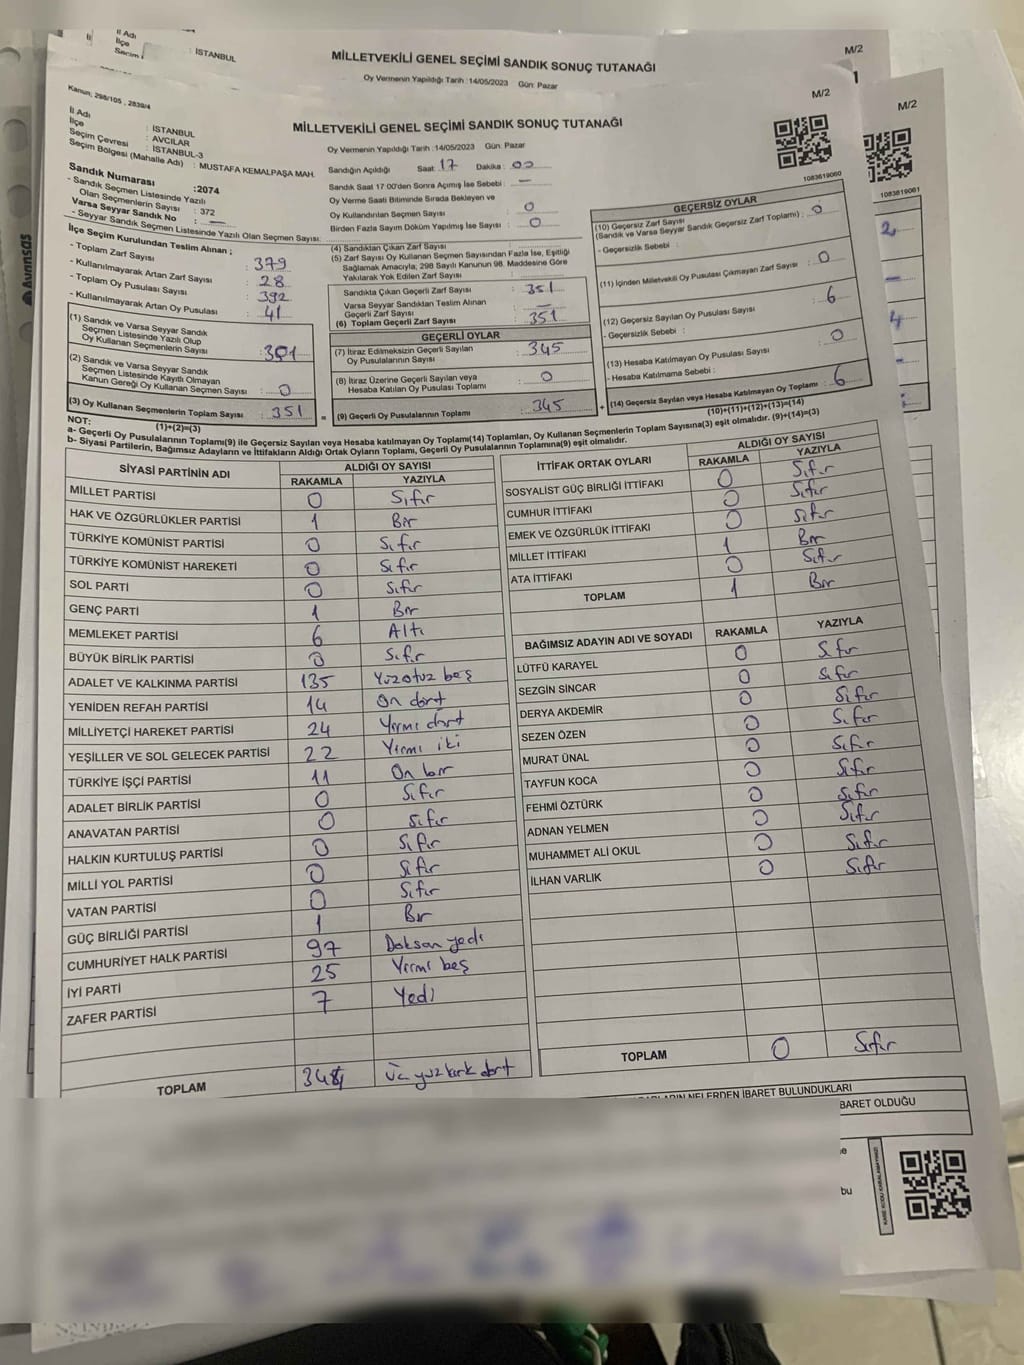 İl Adı
İlçe
: İSTANBUL
MİLLETVEKİLİ GENEL SEÇİMİ SANDIK SONUÇ TUTANAĞI
M/2
Oy Vermenin Yapıldığı Tarih :14/05/2023 Gün: Pazar
Kanun; 298/105 , 2839/4
MİLLETVEKİLİ GENEL SEÇİMİ SANDIK SONUÇ TUTANAĞI
M/2
M/2
İl Adı : İSTANBUL
İlçe : AVCILAR
Seçim Çevresi : İSTANBUL-3
Seçim Bölgesi (Mahalle Adı) : MUSTAFA KEMALPAŞA MAH.
Oy Vermenin Yapıldığı Tarih :14/05/2023 Gün: Pazar
1083619060
1083619061
Sandık Numarası :2074
- Sandık Seçmen Listesinde Yazılı
Olan Seçmenlerin Sayısı : 372
Varsa Seyyar Sandık No : —
- Seyyar Sandık Seçmen Listesinde Yazılı Olan Seçmen Sayısı:
İlçe Seçim Kurulundan Teslim Alınan ;
- Toplam Zarf Sayısı : 379
- Kullanılmayarak Artan Zarf Sayısı : 28
- Toplam Oy Pusulası Sayısı : 392
- Kullanılmayarak Artan Oy Pusulası : 41
(1) Sandık ve Varsa Seyyar Sandık
Seçmen Listesinde Yazılı Olup
Oy Kullanan Seçmenlerin Sayısı : 351
(2) Sandık ve Varsa Seyyar Sandık
Seçmen Listesinde Kayıtlı Olmayan
Kanun Gereği Oy Kullanan Seçmen Sayısı : 0
(3) Oy Kullanan Seçmenlerin Toplam Sayısı : 351 =
(1)+(2)=(3)
Sandığın Açıldığı Saat: 17 Dakika : 00
Sandık Saat 17:00'den Sonra Açılmış İse Sebebi : —
Oy Verme Saati Bitiminde Sırada Bekleyen ve
Oy Kullandırılan Seçmen Sayısı : 0
Birden Fazla Sayım Döküm Yapılmış İse Sayısı : 0
(4) Sandıktan Çıkan Zarf Sayısı :
(5) Zarf Sayısı Oy Kullanan Seçmen Sayısından Fazla İse, Eşitliği
Sağlamak Amacıyla; 298 Sayılı Kanunun 98. Maddesine Göre
Yakılarak Yok Edilen Zarf Sayısı :
Sandıkta Çıkan Geçerli Zarf Sayısı : 351
Varsa Seyyar Sandıktan Teslim Alınan
Geçerli Zarf Sayısı : —
(6) Toplam Geçerli Zarf Sayısı : 351
GEÇERLİ OYLAR
(7) İtiraz Edilmeksizin Geçerli Sayılan
Oy Pusulalarının Sayısı : 345
(8) İtiraz Üzerine Geçerli Sayılan veya
Hesaba Katılan Oy Pusulası Toplamı : 0
(9) Geçerli Oy Pusulalarının Toplamı : 345 +
GEÇERSİZ OYLAR
(10) Geçersiz Zarf Sayısı
(Sandık ve Varsa Seyyar Sandık Geçersiz Zarf Toplamı) : 0
- Geçersizlik Sebebi :
(11) İçinden Milletvekili Oy Pusulası Çıkmayan Zarf Sayısı : 0
(12) Geçersiz Sayılan Oy Pusulası Sayısı : 6
- Geçersizlik Sebebi :
(13) Hesaba Katılmayan Oy Pusulası Sayısı : 0
- Hesaba Katılmama Sebebi :
(14) Geçersiz Sayılan veya Hesaba Katılmayan Oy Toplamı : 6
(10)+(11)+(12)+(13)=(14)
NOT:
a- Geçerli Oy Pusulalarının Toplamı(9) ile Geçersiz Sayılan veya Hesaba katılmayan Oy Toplamı(14) Toplamları, Oy Kullanan Seçmenlerin Toplam Sayısına(3) eşit olmalıdır. (9)+(14)=(3)
b- Siyasi Partilerin, Bağımsız Adayların ve İttifakların Aldığı Ortak Oyların Toplamı, Geçerli Oy Pusulalarının Toplamına(9) eşit olmalıdır.
SİYASİ PARTİNİN ADI ALDIĞI OY SAYISI
RAKAMLA YAZIYLA
MİLLET PARTİSİ 0 Sıfır
HAK VE ÖZGÜRLÜKLER PARTİSİ 1 Bir
TÜRKİYE KOMÜNİST PARTİSİ 0 Sıfır
TÜRKİYE KOMÜNİST HAREKETİ 0 Sıfır
SOL PARTİ 0 Sıfır
GENÇ PARTİ 1 Bir
MEMLEKET PARTİSİ 6 Altı
BÜYÜK BİRLİK PARTİSİ 0 Sıfır
ADALET VE KALKINMA PARTİSİ 135 Yüzotuz beş
YENİDEN REFAH PARTİSİ 14 On dört
MİLLİYETÇİ HAREKET PARTİSİ 24 Yirmi dört
YEŞİLLER VE SOL GELECEK PARTİSİ 22 Yirmi iki
TÜRKİYE İŞÇİ PARTİSİ 11 On bir
ADALET BİRLİK PARTİSİ 0 Sıfır
ANAVATAN PARTİSİ 0 Sıfır
HALKIN KURTULUŞ PARTİSİ 0 Sıfır
MİLLİ YOL PARTİSİ 0 Sıfır
VATAN PARTİSİ 0 Sıfır
GÜÇ BİRLİĞİ PARTİSİ 1 Bir
CUMHURİYET HALK PARTİSİ 97 Doksan yedi
İYİ PARTİ 25 Yirmi beş
ZAFER PARTİSİ 7 Yedi
TOPLAM 344 üç yüz kırk dört
İTTİFAK ORTAK OYLARI ALDIĞI OY SAYISI
RAKAMLA YAZIYLA
SOSYALİST GÜÇ BİRLİĞİ İTTİFAKI 0 Sıfır
CUMHUR İTTİFAKI 0 Sıfır
EMEK VE ÖZGÜRLÜK İTTİFAKI 0 Sıfır
MİLLET İTTİFAKI 1 Bir
ATA İTTİFAKI 0 Sıfır
TOPLAM 1 Bir
BAĞIMSIZ ADAYIN ADI VE SOYADI RAKAMLA YAZIYLA
LÜTFÜ KARAYEL 0 Sıfır
SEZGİN SİNCAR 0 Sıfır
DERYA AKDEMİR 0 Sıfır
SEZEN ÖZEN 0 Sıfır
MURAT ÜNAL 0 Sıfır
TAYFUN KOCA 0 Sıfır
FEHMİ ÖZTÜRK 0 Sıfır
ADNAN YELMEN 0 Sıfır
MUHAMMET ALİ OKUL 0 Sıfır
İLHAN VARLIK 0 Sıfır
TOPLAM 0 Sıfır
NELERDEN İBARET BULUNDUKLARI
BARET OLDUĞU
bu